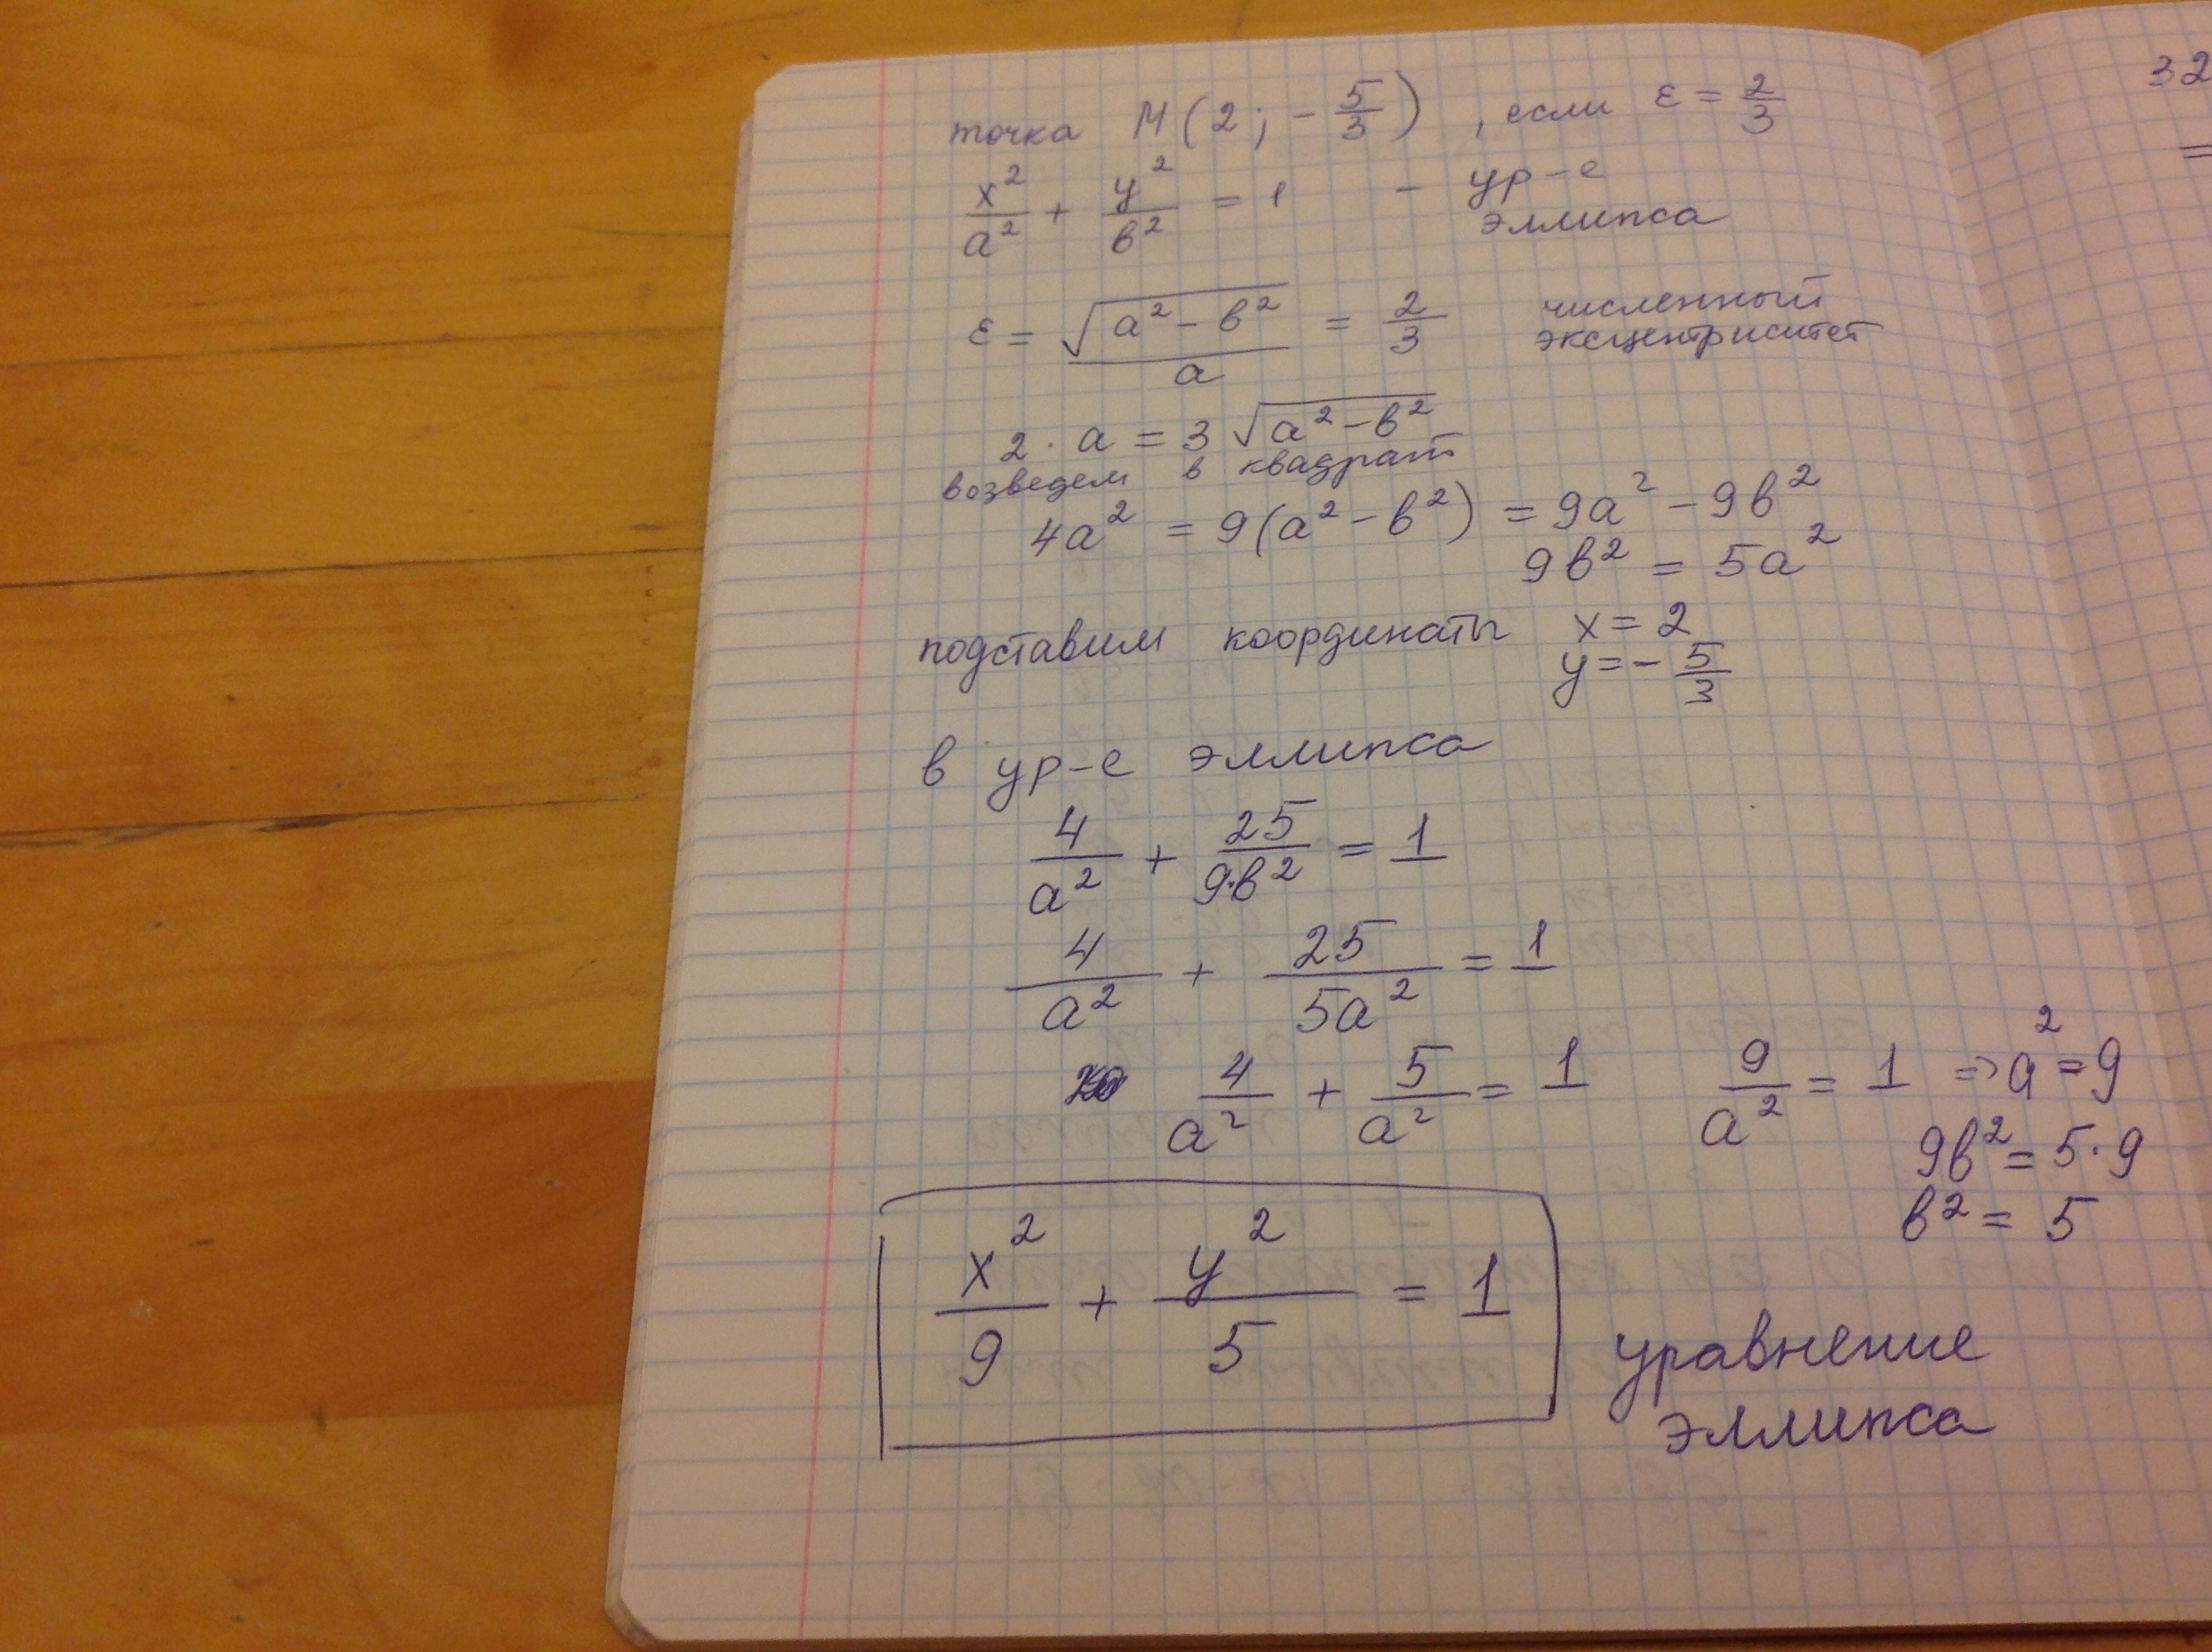 точка М(2; -5/3), если ε = 2/3
x²/a² + y²/в² = 1 - ур-е
эллипса
ε = √(a² - в²)/a = 2/3 численный
эксцентриситет
2 · a = 3√(a² - в²)
возведем в квадрат
4a² = 9(a² - в²) = 9a² - 9в²
9в² = 5a²
подставим координаты x = 2
y = -5/3
в ур-е эллипса
4/a² + 25/9·в² = 1
4/a² + 25/5a² = 1
4/a² + 5/a² = 1 9/a² = 1 => a² = 9
9в² = 5·9
в² = 5
x²/9 + y²/5 = 1
уравнение
эллипса
32
=